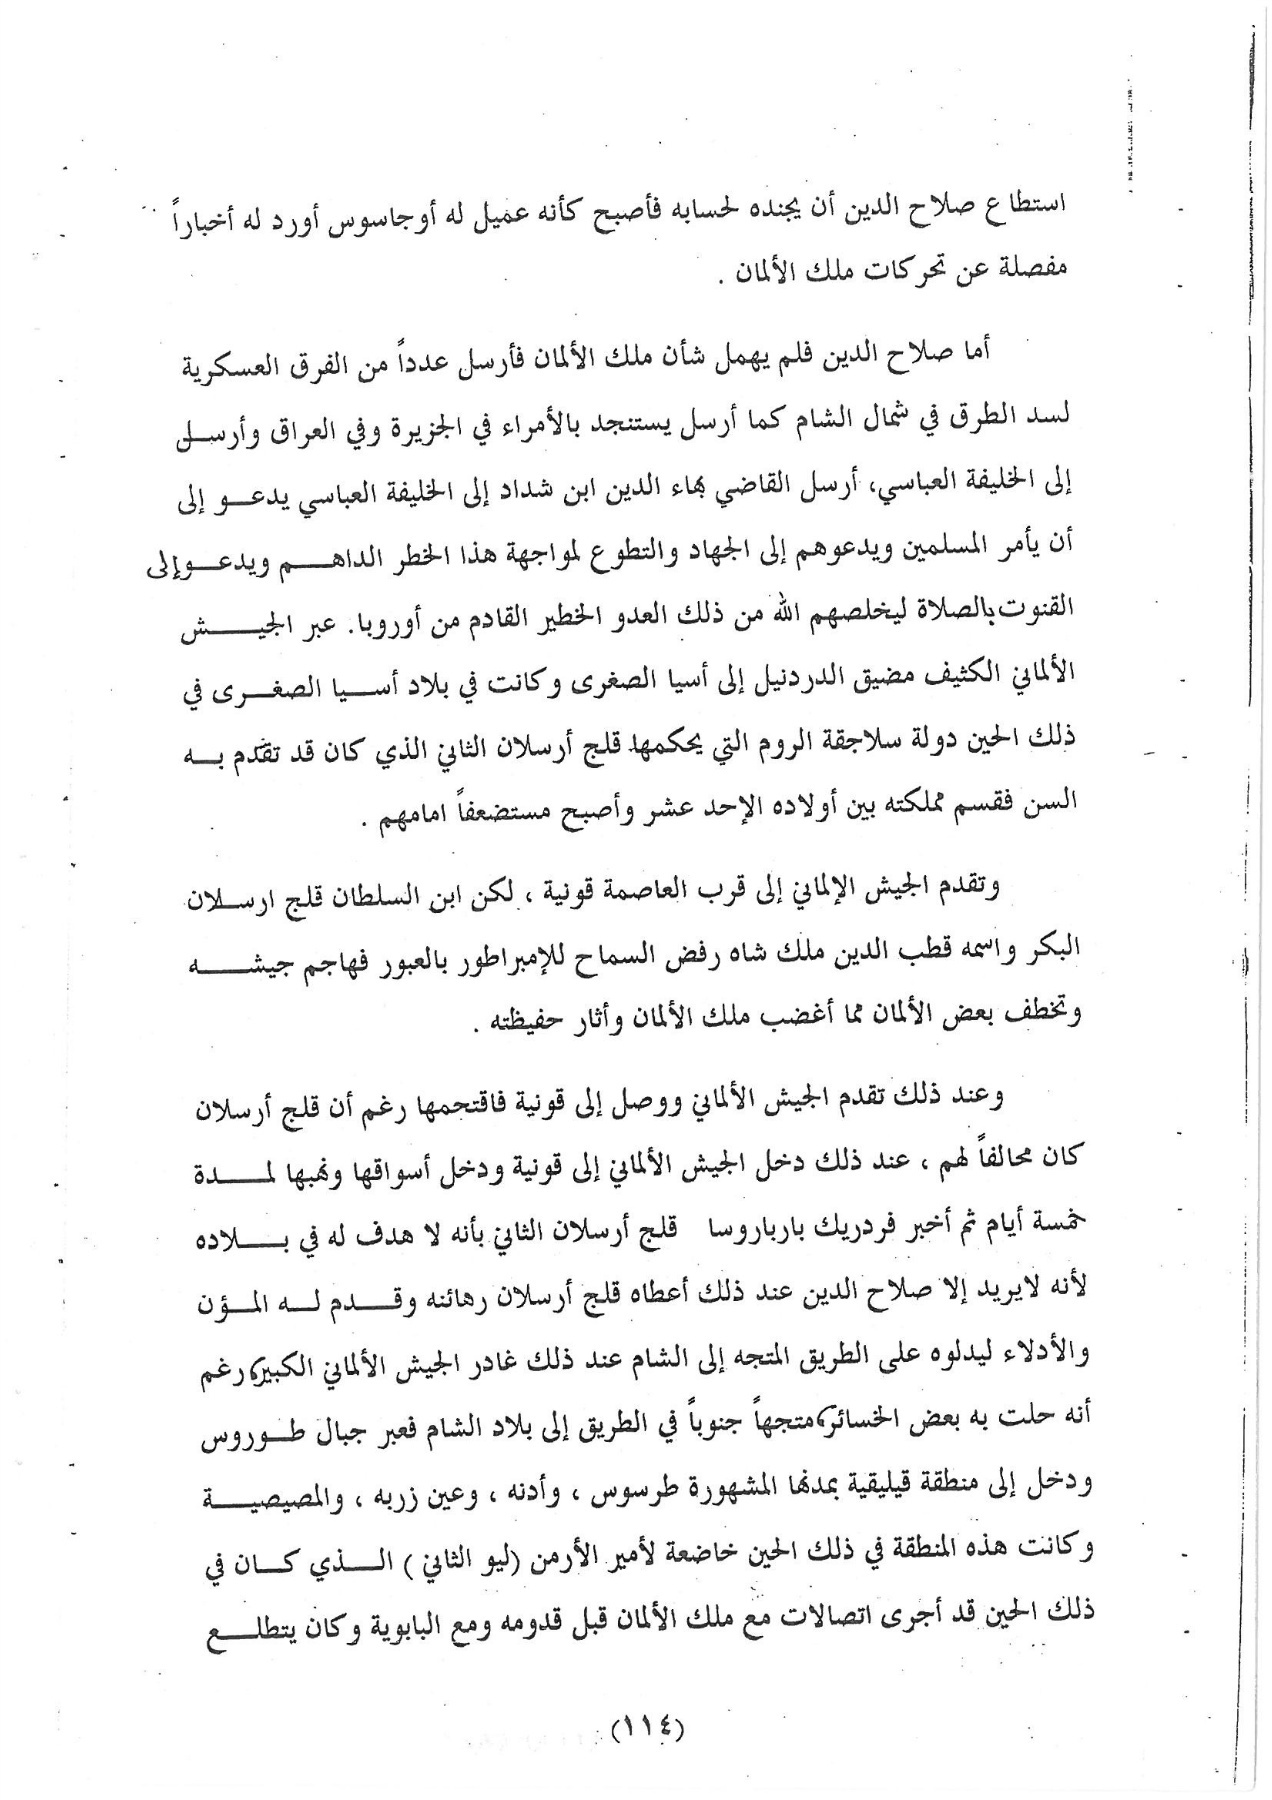 استطاع صلاح الدين أن يجنده لحسابه فأصبح كأنه عميل له أوجاسوس أورد له أخباراً
مفصلة عن تحركات ملك الألمان .
أما صلاح الدين فلم يهمل شأن ملك الألمان فأرسل عدداً من الفرق العسكرية
لسد الطرق في شمال الشام كما أرسل يستنجد بالأمراء في الجزيرة وفي العراق وأرسل
إلى الخليفة العباسي، أرسل القاضي بهاء الدين ابن شداد إلى الخليفة العباسي يدعو إلى
أن يأمر المسلمين ويدعوهم إلى الجهاد والتطوع لمواجهة هذا الخطر الداهم ويدعو إلى
القنوت بالصلاة ليخلصهم الله من ذلك العدو الخطير القادم من أوروبا. عبر الجيش
الألماني الكثيف مضيق الدردنيل إلى أسيا الصغرى وكانت في بلاد أسيا الصغرى في
ذلك الحين دولة سلاجقة الروم التي يحكمها قلج أرسلان الثاني الذي كان قد تقدم به
السن فقسم مملكته بين أولاده الإحد عشر وأصبح مستضعفاً امامهم .
وتقدم الجيش الإلماني إلى قرب العاصمة قونية ، لكن ابن السلطان قلج ارسلان
البكر واسمه قطب الدين ملك شاه رفض السماح للإمبراطور بالعبور فهاجم جيشه
وتخطف بعض الألمان مما أغضب ملك الألمان وأثار حفيظته .
وعند ذلك تقدم الجيش الألماني ووصل إلى قونية فاقتحمها رغم أن قلج أرسلان
كان محالفاً لهم ، عند ذلك دخل الجيش الألماني إلى قونية ودخل أسواقها ونهبها لمدة
خمسة أيام ثم أخبر فردريك بارباروسا قلج أرسلان الثاني بأنه لا هدف له في بلاده
لأنه لايريد إلا صلاح الدين عند ذلك أعطاه قلج أرسلان رهائنه وقدم له المؤن
والأدلاء ليدلوه على الطريق المتجه إلى الشام عند ذلك غادر الجيش الألماني الكبير، رغم
أنه حلت به بعض الخسائر، متجهاً جنوباً في الطريق إلى بلاد الشام فعبر جبال طوروس
ودخل إلى منطقة قيليقية بمدنها المشهورة طرسوس ، وأدنه ، وعين زربه ، والمصيصية
وكانت هذه المنطقة في ذلك الحين خاضعة لأمير الأرمن (ليو الثاني ) الذي كان في
ذلك الحين قد أجرى اتصالات مع ملك الألمان قبل قدومه ومع البابوية وكان يتطلع
(١١٤)